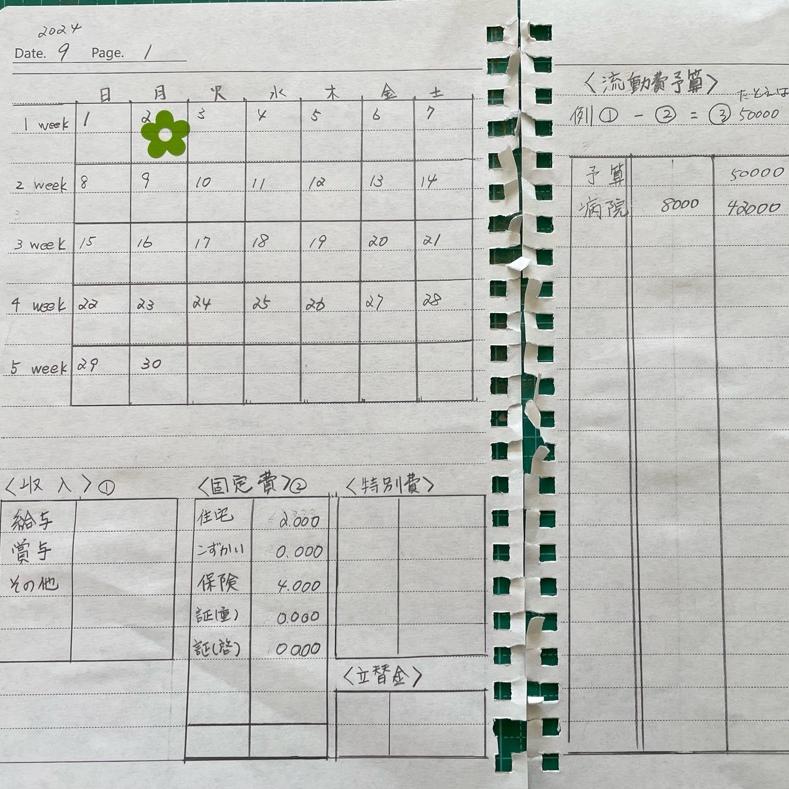 2024
Date. 9 Page. 1
日 月 火 水 木 金 土
1 week 1 2 3 4 5 6 7
2 week 8 9 10 11 12 13 14
3 week 15 16 17 18 19 20 21
4 week 22 23 24 25 26 27 28
5 week 29 30
〈収入〉①
給与
賞与
その他
〈固定費〉②
住宅 2.000
こずかい 0.000
保険 4.000
証(重) 0.000
証(啓) 0.000
〈特別費〉
〈立替金〉
〈流動費予算〉
たとえば
例 ① - ② = ③ 50000
予算 50000
病院 8000 42000